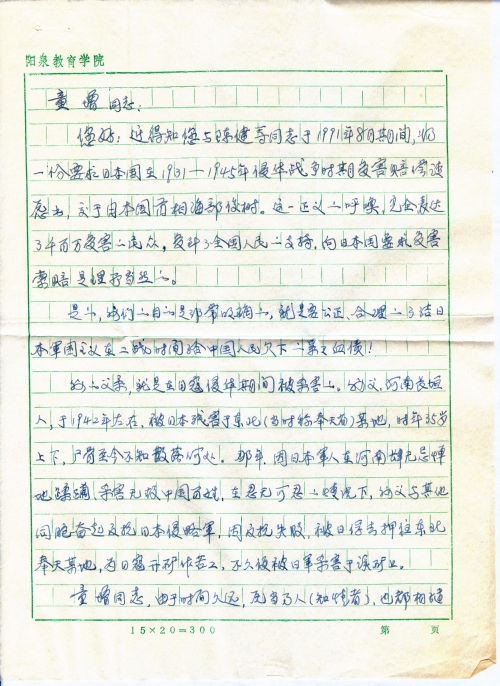 阳泉教育学院
童增同志：
您好！近得知您与陈健等同志于1991年8月期间，将
一份要求日本国在1931—1945年侵华战争时期受害赔偿
愿书，交于日本国首相海部俊树。这一正义的呼唤，完全表达
了千百万受害的民众，受到了全国人民的支持，向日本国要求受害
索赔是理所当然的。
是的，我们的目的是非常明确的，就是要公正、合理的了结日
本军国主义在二战时间给中国人民欠下的累累血债！
我的父亲，就是在日寇侵华期间被杀害的。我父，河南长垣
人，于1942年左右，被日本残害于东北（当时称奉天省）某地，时年35岁
上下，尸骨至今不知散落何处。那年，因日本军人在河南肆无忌惮
地蹂躏、杀害无极中国百姓，在忍无可忍的情况下，我父与其他
同胞奋起反抗日本侵略军，因反抗失败，被日俘去押往东北
奉天某地，为日寇开矿作苦工，不久后被日军杀害于该矿山。
童增同志，由于时间久远，死当事人（知情者），也都相继
15×20=300
第 页